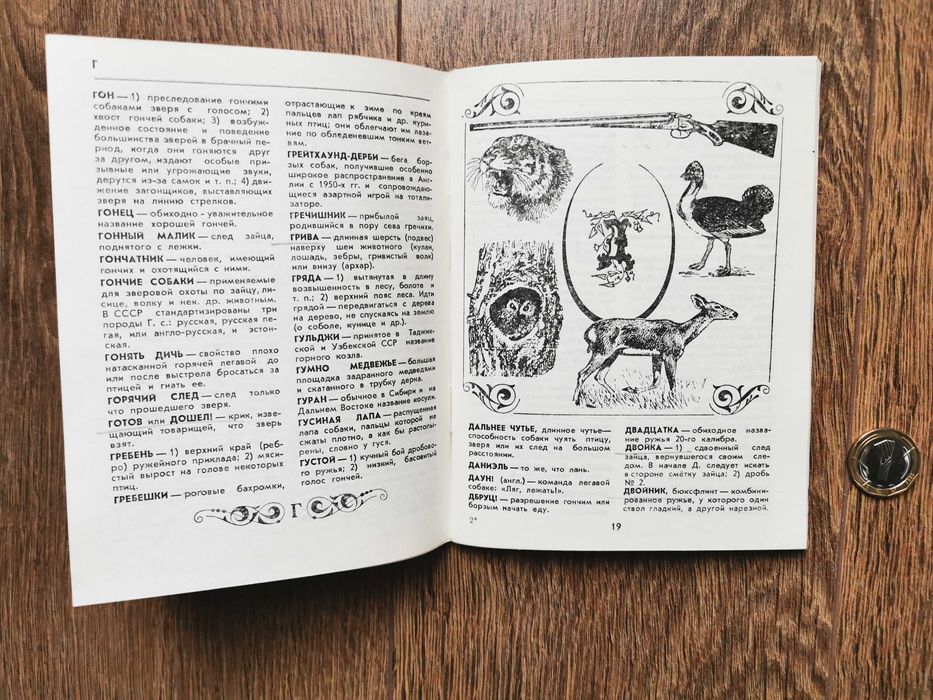 Г
ГОН — 1) преследование гончими
собаками зверя с голосом; 2)
хвост гончей собаки; 3) возбуж-
денное состояние и поведение
большинства зверей в брачный пе-
риод, когда они гоняются друг
за другом, издают особые при-
зывные или угрожающие звуки,
дерутся из-за самок и т. п.; 4) дви-
жение загонщиков, выставляющих
зверя на линию стрелков.
ГОНЕЦ — обиходно - уважительное
название хорошей гончей.
ГОННЫЙ МАЛИК — след зайца,
поднятого с лежки.
ГОНЧАТНИК — человек, имеющий
гончих и охотящийся с ними.
ГОНЧИЕ СОБАКИ — применяемые
для зверовой охоты по зайцу, ли-
сице, волку и нек. др. животным.
В СССР стандартизированы три
породы Г. с.: русская, русская пе-
гая, или англо-русская, и эстон-
ская.
ГОНЯТЬ ДИЧЬ — свойство плохо
натасканной горячей легавой до
или после выстрела бросаться за
птицей и гнать ее.
ГОРЯЧИЙ СЛЕД — след только
что прошедшего зверя.
ГОТОВ или ДОШЕЛ! — крик, изве-
щающий товарищей, что зверь
взят.
ГРЕБЕНЬ — 1) верхний край (реб-
ро) ружейного приклада; 2) мяси-
стый вырост на голове некоторых
птиц.
ГРЕБЕШКИ — роговые бахромки,
отрастающие к зиме по краям
пальцев лап рябчика и др. кури-
ных птиц; они облегчают им лаза-
ние по обледеневшим тонким вет-
вям.
ГРЕЙТХАУНД-ДЕРБИ — бега бор-
зых собак, получившие особенно
широкое распространение в Анг-
лии с 1950-х гг. и сопровождаю-
щиеся азартной игрой на тотали-
заторе.
ГРЕЧИШНИК — прибылой заяц,
родившийся в пору сева гречихи.
ГРИВА — длинная шерсть (подвес)
наверху шеи животного (кулан,
лошадь, зебры, гривистый волк)
или внизу (архар).
ГРЯДА — 1) вытянутая в длину
возвышенность в лесу, болоте и
т. п.; 2) верхний пояс леса. Идти
грядой — передвигаться с дерева
на дерево, не спускаясь на землю
(о соболе, кунице и др.).
ГУЛЬДЖИ — принятое в Таджик-
ской и Узбекской ССР название
горного козла.
ГУМНО МЕДВЕЖЬЕ — большая
площадка задранного медведями
и скатанного в трубку дерна.
ГУРАН — обычное в Сибири и на
Дальнем Востоке название косули.
ГУСИНАЯ ЛАПА — распущенная
лапа собаки, пальцы которой не
сжаты плотно, а как бы растопы-
рены, словно у гуся.
ГУСТОЙ — 1) кучный бой дробово-
го ружья; 2) низкий, басовитый
голос гончей.
Г
Д
ДАЛЬНЕЕ ЧУТЬЕ, длинное чутье—
способность собаки чуять птицу,
зверя или их след на большом
расстоянии.
ДАНИЭЛЬ — то же, что лань.
ДАУН! (англ.) — команда легавой
собаке: «Ляг, лежать!».
ДБРУЦ! — разрешение гончим или
борзым начать еду.
2*
ДВАДЦАТКА — обиходное назва-
ние ружья 20-го калибра.
ДВОЙКА — 1) сдвоенный след
зайца, вернувшегося своим сле-
дом. В начале Д. следует искать
в стороне смётку зайца; 2) дробь
№ 2.
ДВОЙНИК, бюксфлинт — комбини-
рованное ружье, у которого один
ствол гладкий, а другой нарезной.
19